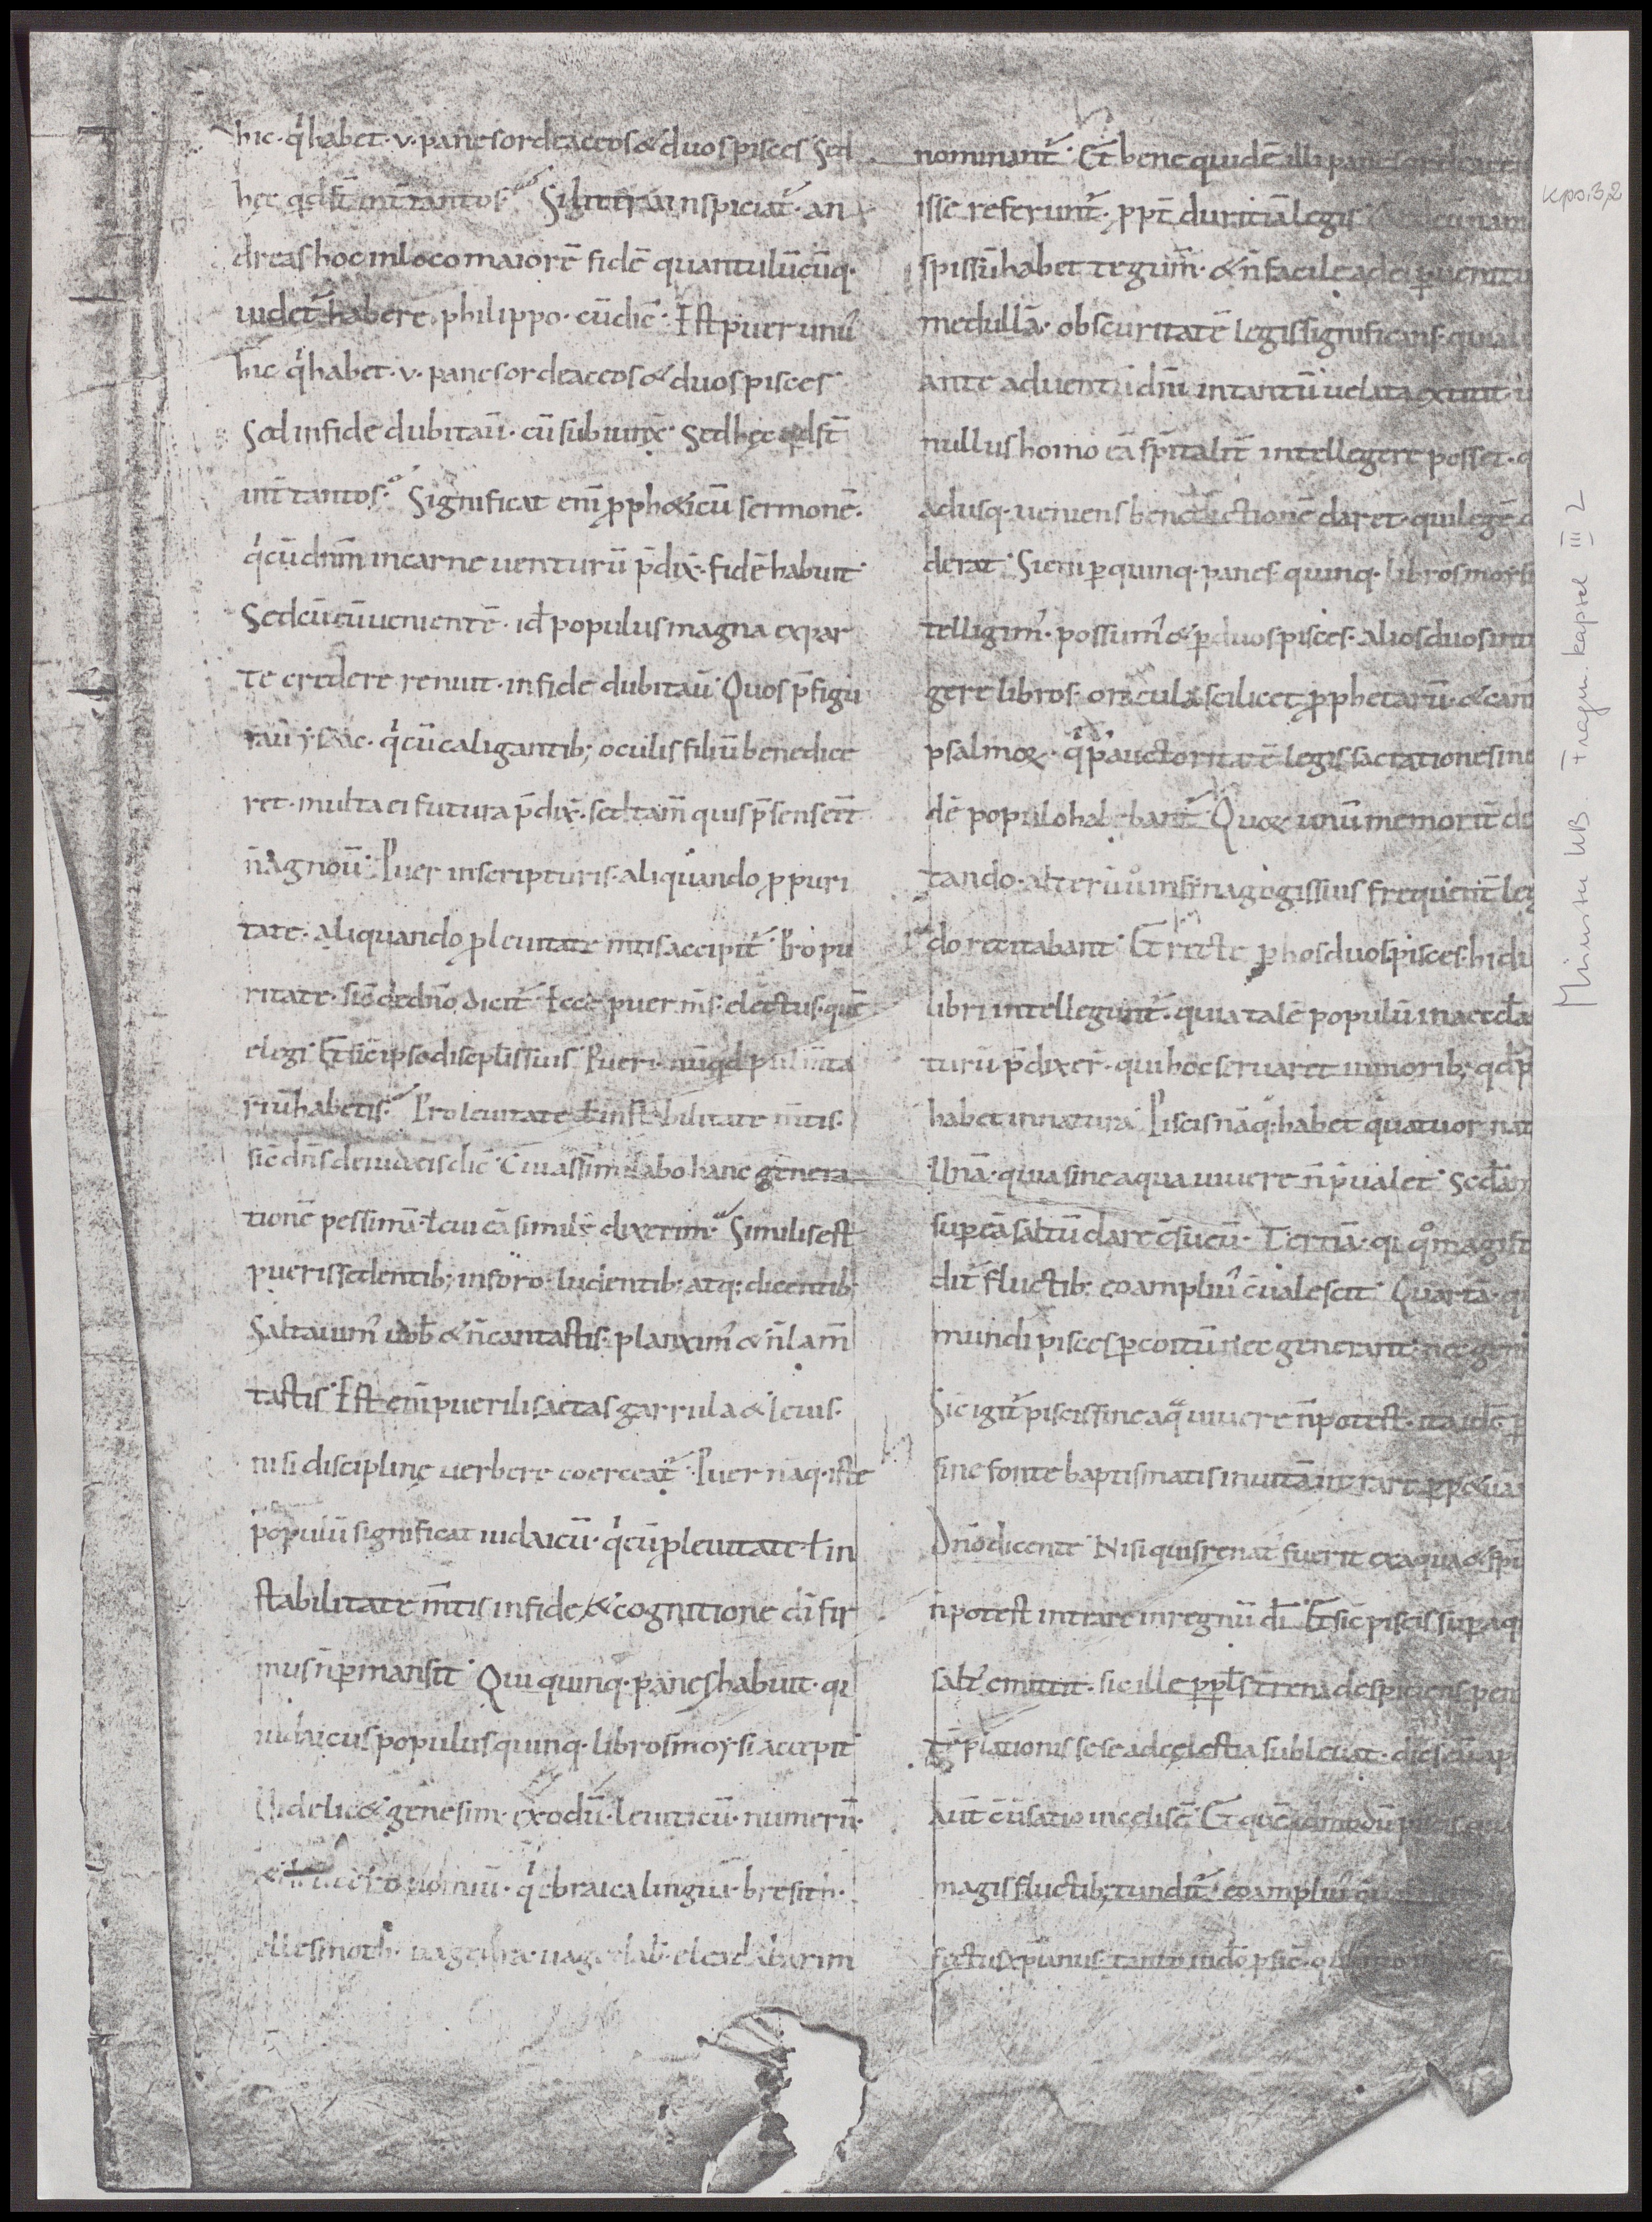 hic · qͥ habet · v · panes ordeaceos & duos pisces Sed
hęc qd st̄ int̄ tantos · Si littera inspiciat᷑ · an
dreas hoc in loco maiorē fidē quantulūcūq ·
uidet᷑ habere philippo · cū dic̄ · Est puer unꝰ
hic qͥ habet · v · panes ordeaceos & duos pisces
Sed in fide dubitau̅ · cū subiunx̄ · Sed hęc qd st̄
int̄ tantos · Significat eni̅ ꝓph&icū sermonē ·
qͥ cū dnm̄ in carne uenturū p̄dix̄ · fidē habuit
Sed cū eū uenientē · id ÷ populus magna ex par
te credere renuit · in fide dubitau̅ · Quos p̄figu
rau̅ ysaac · qͥ cū caligantib; oculis filiū benedice
ret · multa ei futura p̄dix̄ · sed tam̄ quis p̄sens eēt
n̄ agnou̅ · Puer in scripturis · aliquando ꝓ puri
tate · aliquando ꝓ leuitate m̄tis accipit᷑ · Pro pu
ritate · sic̄ de dn̄o dicit᷑ Ecce puer m̄s · electus · quē
elegi · Et sic̄ ipse discipl̄is suis · Pueri · nūqd pulm̄ta
riū habetis · Pro leuitate ł instabilitate m̄tis ·
sic̄ dn̄s de iudeis dic̄ · Cui assimilabo hanc genera
tionē pessimā · ł cui eā similē dixerim · Similis est
pueris sedentib; in foro · ludentib; atq; dicentib;
Saltauimꝰ uob̄ & n̄ cantastis · planximꝰ & n̄ lam̄
tastis · Est eni̅ puerilis aetas garrula & leuis ·
nisi disciplinę uerbere coerceat᷑ · Puer nāq · iste
populū significat iudaicū · qͥ cū ꝓ leuitate ł in
stabilitate m̄tis in fide & cognitione dī fir
mus n̄ ꝑmansit · Qui quinq · panes habuit · qi
iudaicus populus quinq · libros moysi accepit
Videlic& genesim · exodū · leuiticū · numerū ·
& · qͥ ebraica lingua · bresith ·
ellesmoth · elead dabarim
nominant᷑ · Et bene quidē illi panes ordeacei
isse referunt᷑ · ꝓpt̄ duritiā legis
spissū habet tegum̄ · & n̄ facile ad ei ꝑuenitu
medullā · obscuritatē legis significans · quia l
ante aduentū dn̄i in tantū uelata extitit · u
nullus homo eā sp̄italit̄ intellegere posset · q
adusq · ueniens benedictionē daret · qui legē d
derat · Sic eni̅ ꝑ quinq · panes quinq · libros moysi
telligimꝰ · possumꝰ & ꝑ duos pisces · alios duos inte
gere libros · oracula scilicet ꝓphetarū · & can
psalmoꝝ · qͥ p̄ auctoritatē legis sacrationes in e
dē populo habebant᷑ · Quoꝝ unū memorit̄ de
tando · alterū u̅ in sinagogis suis frequent̄ leg
do recitabant · Et recte ꝑ hos duos pisces · hi du
libri intellegunt᷑ · quia talē populū in aeccl̄a
turū p̄dixer̄ · qui hoc seruaret in morib; qd p
habet in natura · Piscis nāq; habet quatuor nat
Unā · quia sine aqua uiuere n̄ p̄ualet · Sed̄am
sup eā saltū dare c̄sueuı̅ · Tertiā · qi qͦ magis t
dit᷑ fluctib; eo ampliuꝰ c̄ualescit · Quartā · qi
mundi pisces ꝑ coitū nec generant · nec gen
Sic igit᷑ piscis sine aqͣ uiuere n̄ potest · ita id ÷ p
sine fonte baptismatis in uitā intrare ꝑp&uā
Dn̄o dicente · Nisi quis renatꝰ fuerit ex aqua & spu̅
n̄ potest intrare in regnū dī · Et sic̄ piscis sup aq
saltꝰ emittit · sic ille ppl̄s terrena despiciens · pen
tēplationis sese ad cęlestia subleuat · dic̄
Aut̄ c̄ūsatio in celis ē · Et quēadmodū piscis qu
magis fluctib; tundit᷑ · eo ampliuꝰ
fectus xp̄ianus · tanto
kps. 3,2
Münster UB. Fragm. kapsel III 2